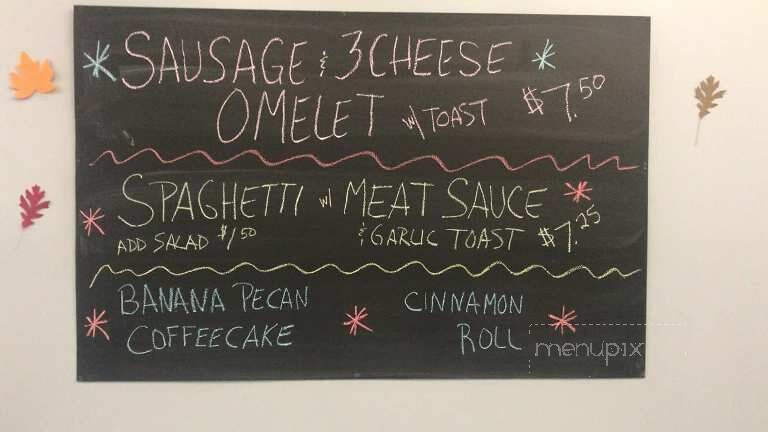 SAUSAGE & 3 CHEESE
OMELET w/ TOAST $7.50
SPAGHETTI w/ MEAT SAUCE
ADD SALAD $1.50 & GARLIC TOAST $7.25
BANANA PECAN
COFFEECAKE
CINNAMON
ROLL
menupix